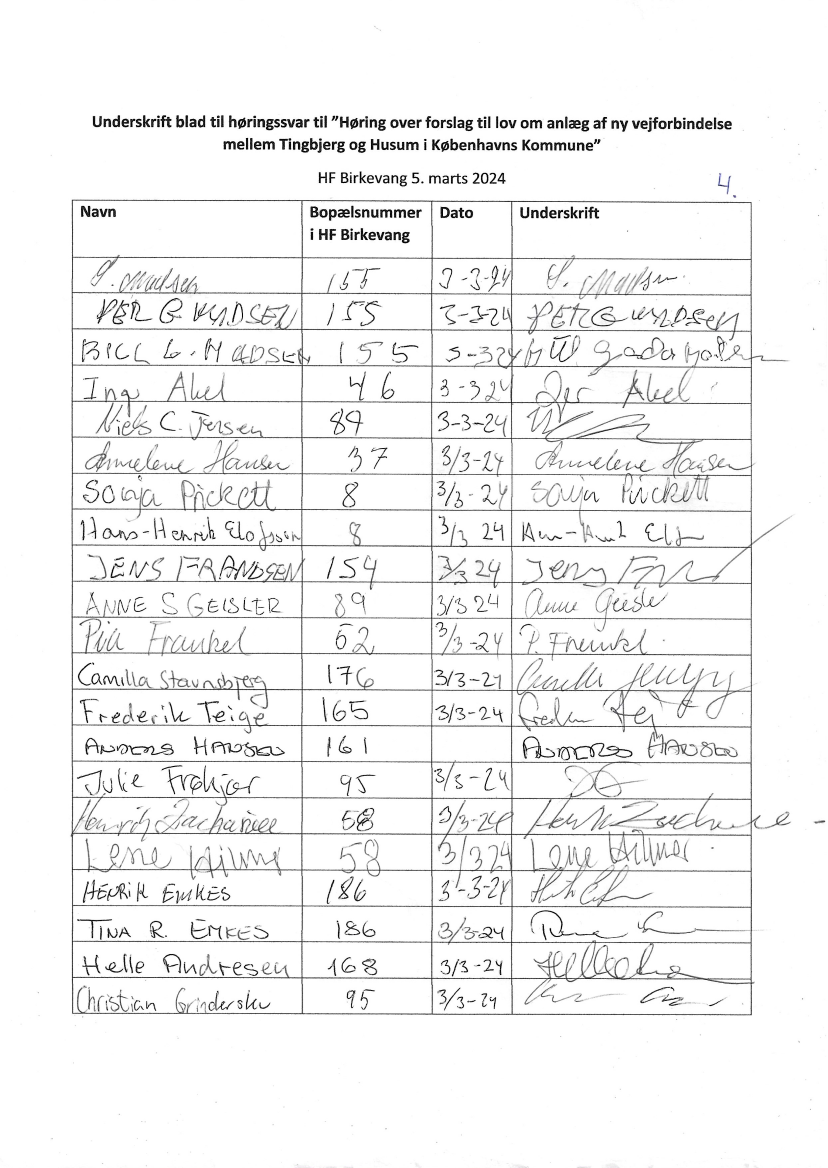 Underskrift blad til høringssvar til ”Høring over forslag til lov om anlæg af ny vejforbindelse
mellem Tingbjerg og Husum i Københavns Kommune”
HF Birkevang 5. marts 2024
4.
Navn Bopælsnummer i HF Birkevang Dato Underskrift
S. Madsen 155 3-3-24 S. Madsen
PER G KNUDSEN 155 3-3-24 PER G KNUDSEN
BILL G. MADSEN 155 3-3 24
Ing Abel 46 3-3 24 Abel
Niels C. Jensen 89 3-3-24
Annelene Hansen 37 3/3-24 Annelene Hansen
Sonja Prickett 8 3/3-24 Sonja Prickett
Hans-Henrik Elofsson 8 3/3 24
JENS FRANDSEN 154 3/3 24 Jens
ANNE S GEISLER 89 3/3 24 Anne Geisler
Pia Frankel 62 3/3-24 P. Frenkel
Camilla Stavnsbjerg 176 3/3-21
Frederik Teige 165 3/3-24
ANDERS HANSEN 161 ANDERS HANSEN
Julie Frøkjær 95 3/3-24
Henrik Zachariae 58 3/3-24
Lene Hilmer 58 3/3 24 Lene Hilmer
HENRIK EMKES 186 3-3-24
TINA R. EMKES 186 3/3-24
Helle Andresen 168 3/3-24
Christian Grinderslev 95 3/3-24